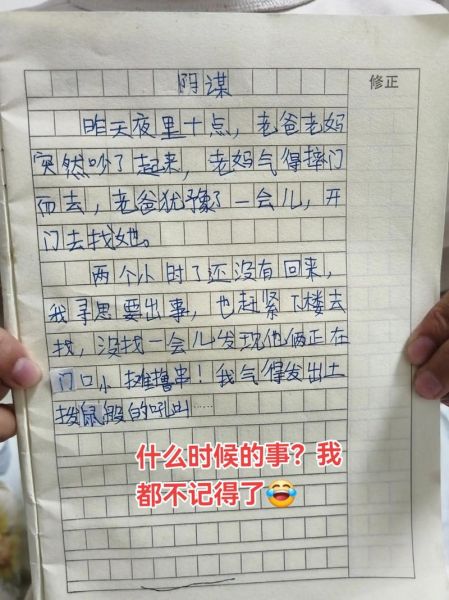 阴谋
修正
昨天夜里十点，老爸老妈
突然吵了起来，老妈气得摔门
而去，老爸犹豫了一会儿，开
门去找她。
两个小时了还没有回来，
我寻思要出事，也赶紧下楼去
找，没找一会儿发现他俩正在
门口小摊撸串！我气得发出土
拨鼠般的吼叫……
什么时候的事？我
都不记得了😂